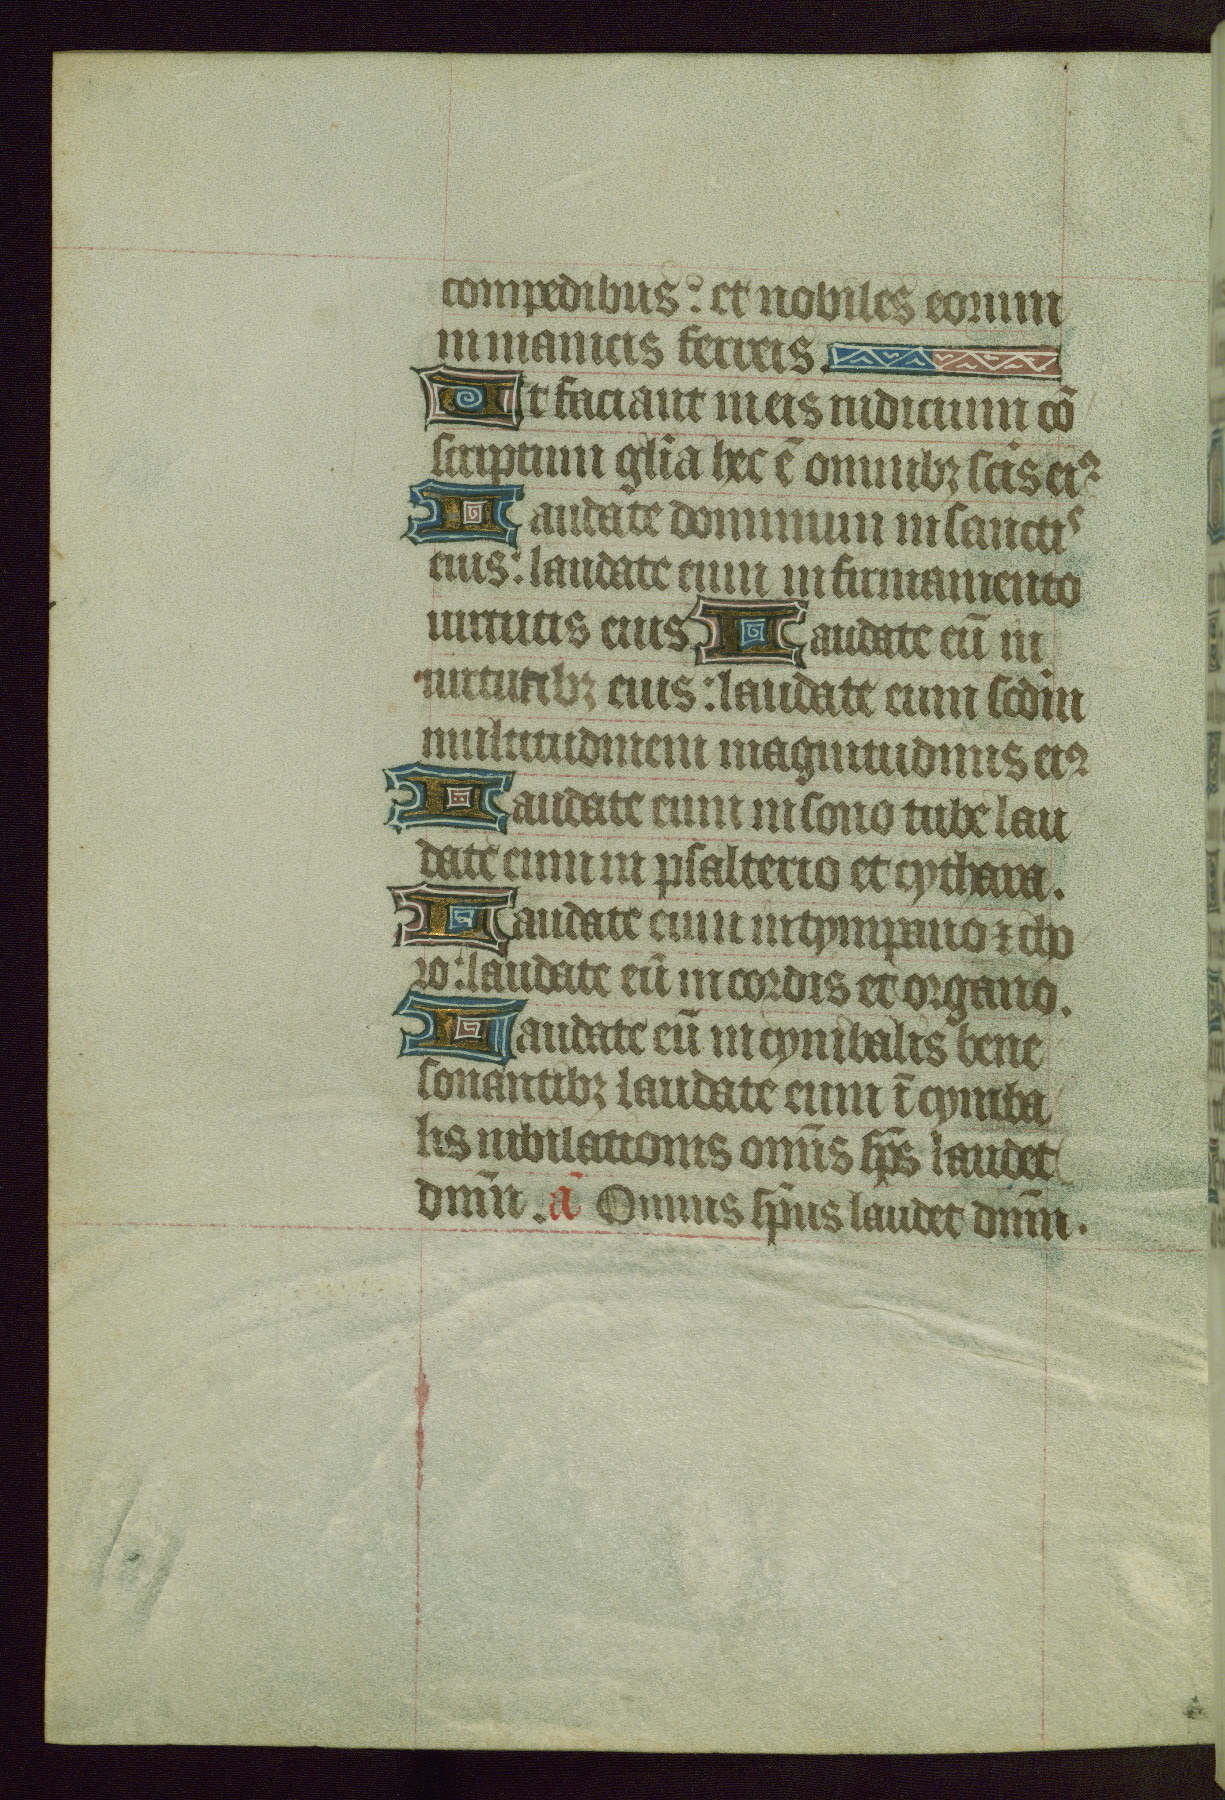 compedibus : et nobiles eorum
in manicis ferreis.
Ut faciant in eis iudicium cō
scriptum gl̄ia hec ē omnibꝫ sc̄is eiꝰ
Laudate dominum in sanctis
eius : laudate eum in firmamento
uirtutis eius Laudate eū in
uirtutibꝫ eius : laudate eum scd̄m
multitudinem magnitudinis eiꝰ
Laudate eum in sono tube lau
date eum in psalterio et cythara.
Laudate eum in tympano ⁊ cho
ro : laudate eū in cordis et organo.
Laudate eū in cymbalis bene
sonantibꝫ laudate eum ī cymba
lis iubilationis omīs sp̄s laudet
dnm̄ . a̅ Omnis sp̄us laudet dnm̄.